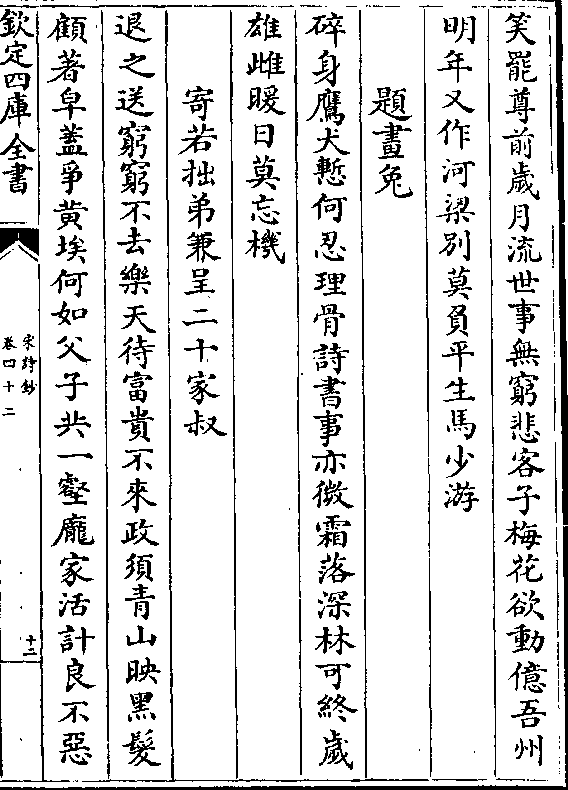 笑罷尊前歲月流世事無窮悲客子梅花欲動億吾州
明年又作河梁別莫負平生馬少游
題畫兔
碎身鷹犬慙何忍埋骨詩書事亦微霜落深林可終歲
雄雌暖日莫忘機
寄若拙弟兼呈二十家叔
退之送窮窮不去樂天待富貴不來政須青山映黑髮
顧著皁蓋爭黃埃何如父子共一壑龐家活計良不惡
欽定四庫全書
宋詩鈔
卷四十二
十二